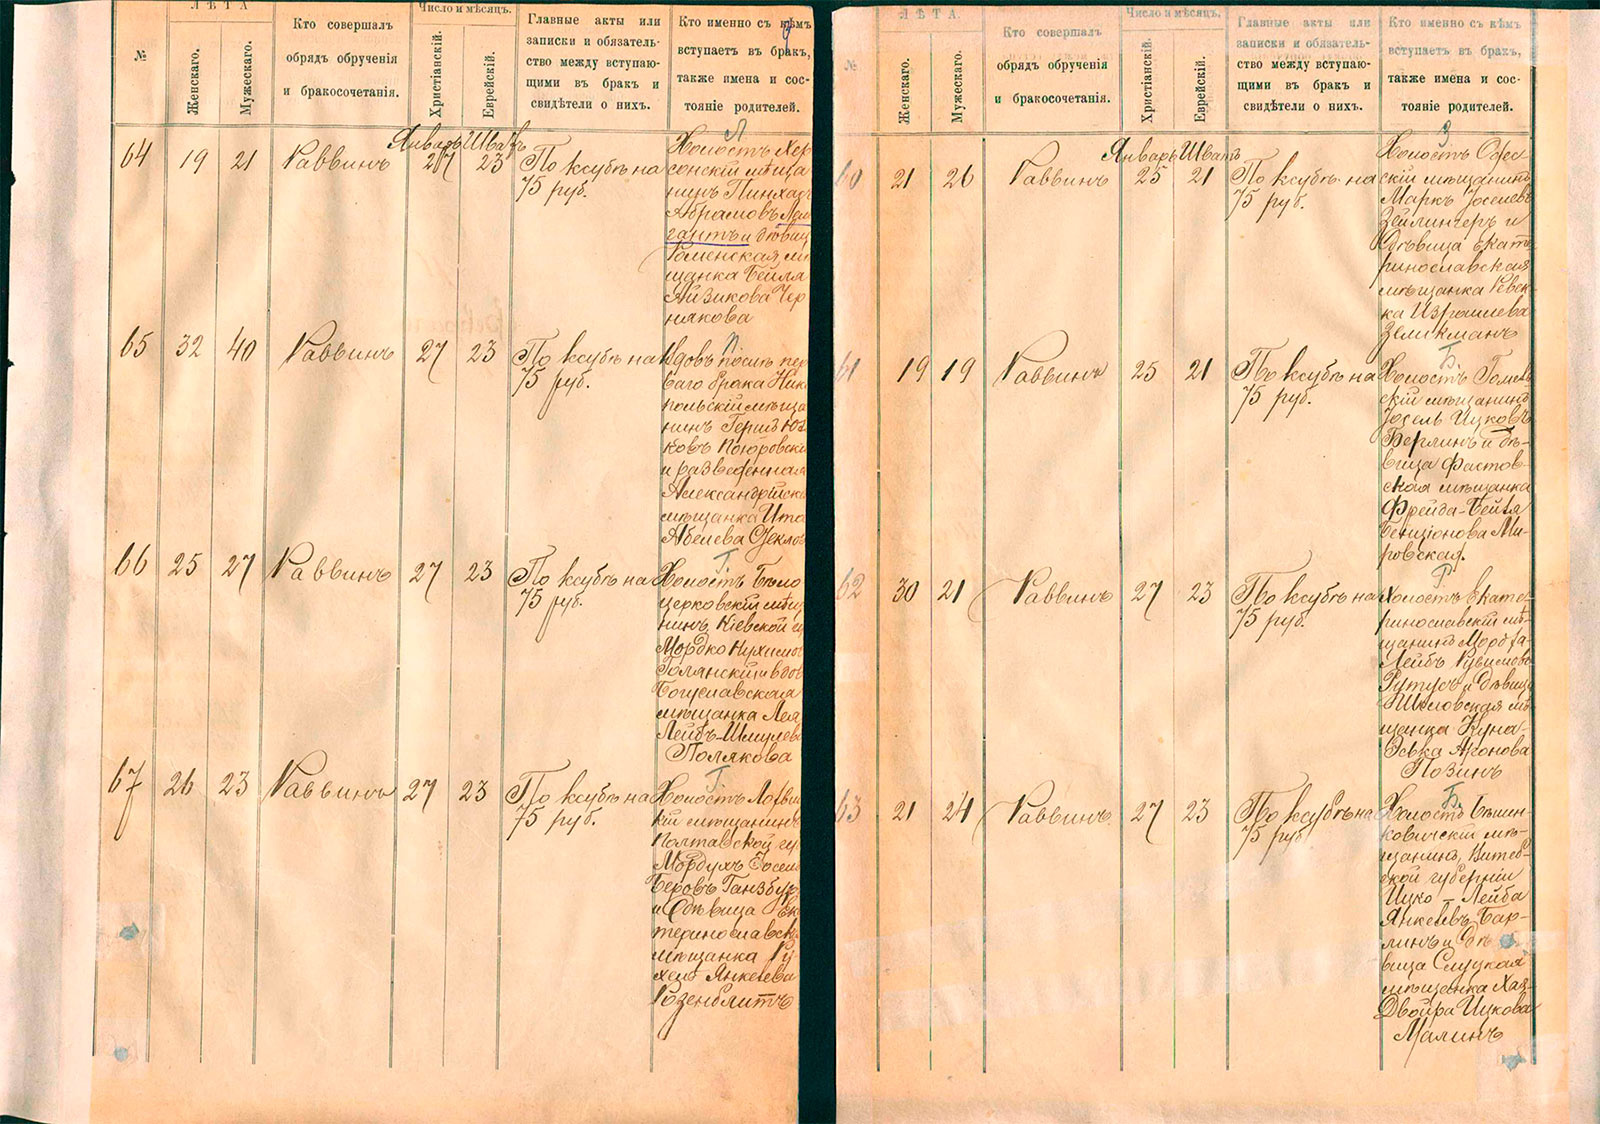 ЛѢТА
Число и мѣсяцъ.
№
Женскаго.
Мужескаго.
Кто совершалъ
обрядъ обрученія
и бракосочетанія.
Христіанскій.
Еврейскій.
Главные акты или
записки и обязатель-
ство между вступаю-
щими въ бракъ и
свидѣтели о нихъ.
Кто именно съ кѣмъ
вступаетъ въ бракъ,
также имена и сос-
тояніе родителей.
Январь Шватъ
64 19 21 Раввинъ 27 23 По ксубѣ на
75 руб.
Л
Холостъ Хер
сонскій мѣща
нинъ Пинхасъ
Абрамовъ
гантъ и дѣвиц
Роменская мѣ
щанка Бейля
Айзикова Чер
някова
65 32 40 Раввинъ 27 23 По ксубѣ на
75 руб.
Вдовъ послѣ пер
ваго брака Ник
польскій мѣща
нинъ Герш
ковъ
и разведенная
Александрійска
мѣщанка Ита
Абелева
66 25 27 Раввинъ 27 23 По ксубѣ на
75 руб.
Г
Холостъ Бѣло
церковскій мѣща
нинъ, Кіевской гу
Мордко Нухимов
Голянскій и вдов
Богуславская
мѣщанка Лея
Лейбъ-Шмулева
Полякова
67 26 23 Раввинъ 27 23 По ксубѣ на
75 руб.
Г
Холостъ Лохвиц
кій мѣщанинъ
Полтавской гу
Мордухъ Іосел
Беровъ Ганзбур
и дѣвица Ека
теринославск
мѣщанка Ру
хля Янкелева
Розенблитъ
ЛѢТА.
Число и мѣсяцъ.
№
Женскаго.
Мужескаго.
Кто совершалъ
обрядъ обрученія
и бракосочетанія.
Христіанскій.
Еврейскій.
Главные акты или
записки и обязатель-
ство между вступаю-
щими въ бракъ и
свидѣтели о нихъ.
Кто именно съ кѣмъ
вступаетъ въ бракъ,
также имена и сос-
тояніе родителей.
Январь Шватъ
60 21 26 Раввинъ 25 21 По ксубѣ на
75 руб.
З
Холостъ Одес
скій мѣщанинъ
Маркъ Іоселевъ
Зейлингеръ и
дѣвица Екате
ринославская
мѣщанка Ревек
ка Изроилева
Зеликманъ
61 19 19 Раввинъ 25 21 По ксубѣ на
75 руб.
Б
Холостъ Гомель
скій мѣщанинъ
Іосель Ицковъ
Берлинъ и дѣ-
вица Фастов-
ская мѣщанка
Фрейда-Бейля
Бенціонова Ми-
ровская.
62 30 21 Раввинъ 27 23 По ксубѣ на
75 руб.
Р
Холостъ Екате-
ринославскій мѣ-
щанинъ Мордха-
Лейбъ Рувимовъ
и дѣвица
Шкловская мѣ-
щанка Куна-
Эська Аронова
Позинъ
63 21 24 Раввинъ 27 23 По ксубѣ на
75 руб.
Б
Холостъ Бѣшин-
ковичскій мѣ-
щанинъ, Витеб-
ской губерніи
Ицко-Лейба
Янкелевъ Бар-
линъ и дѣ-
вица Слуцкая
мѣщанка Хая-
Двойра Ицкова
Малинъ